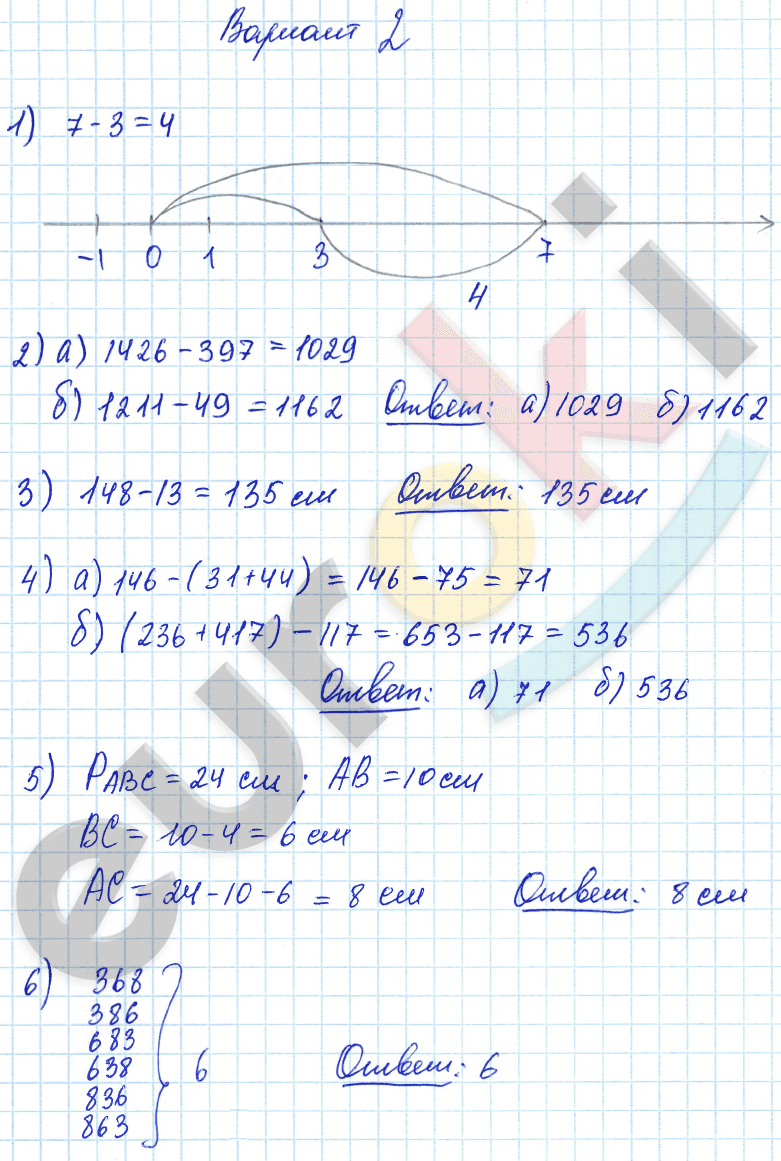 Вариант 2
1) 7 - 3 = 4
-1 0 1 3 7
4
2) а) 1426 - 397 = 1029
б) 1211 - 49 = 1162 Ответ: а) 1029 б) 1162
3) 148 - 13 = 135 см Ответ: 135 см
4) а) 146 - (31 + 44) = 146 - 75 = 71
б) (236 + 417) - 117 = 653 - 117 = 536
Ответ: а) 71 б) 536
5) PABC = 24 см ; AB = 10 см
BC = 10 - 4 = 6 см
AC = 24 - 10 - 6 = 8 см Ответ: 8 см
6) 368
386
683
638 6 Ответ: 6
836
863
euroki